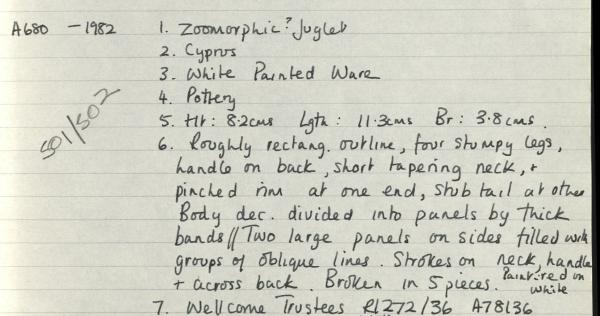 A680 - 1982 1. Zoomorphic? Juglet
2. Cyprus
3. White Painted Ware
4. Pottery
501/502
5. Ht: 8.2cms Lgth: 11.3cms Br: 3.8cms.
6. Roughly rectang. outline, four stumpy legs,
handle on back, short tapering neck, +
pinched rim at one end, stub tail at other
Body dec. divided into panels by thick
bands // Two large panels on sides filled with
groups of oblique lines. Strokes on neck, handle
+ across back. Broken in 5 pieces. Paint: red on white
7. Wellcome Trustees R1272/36 A78136